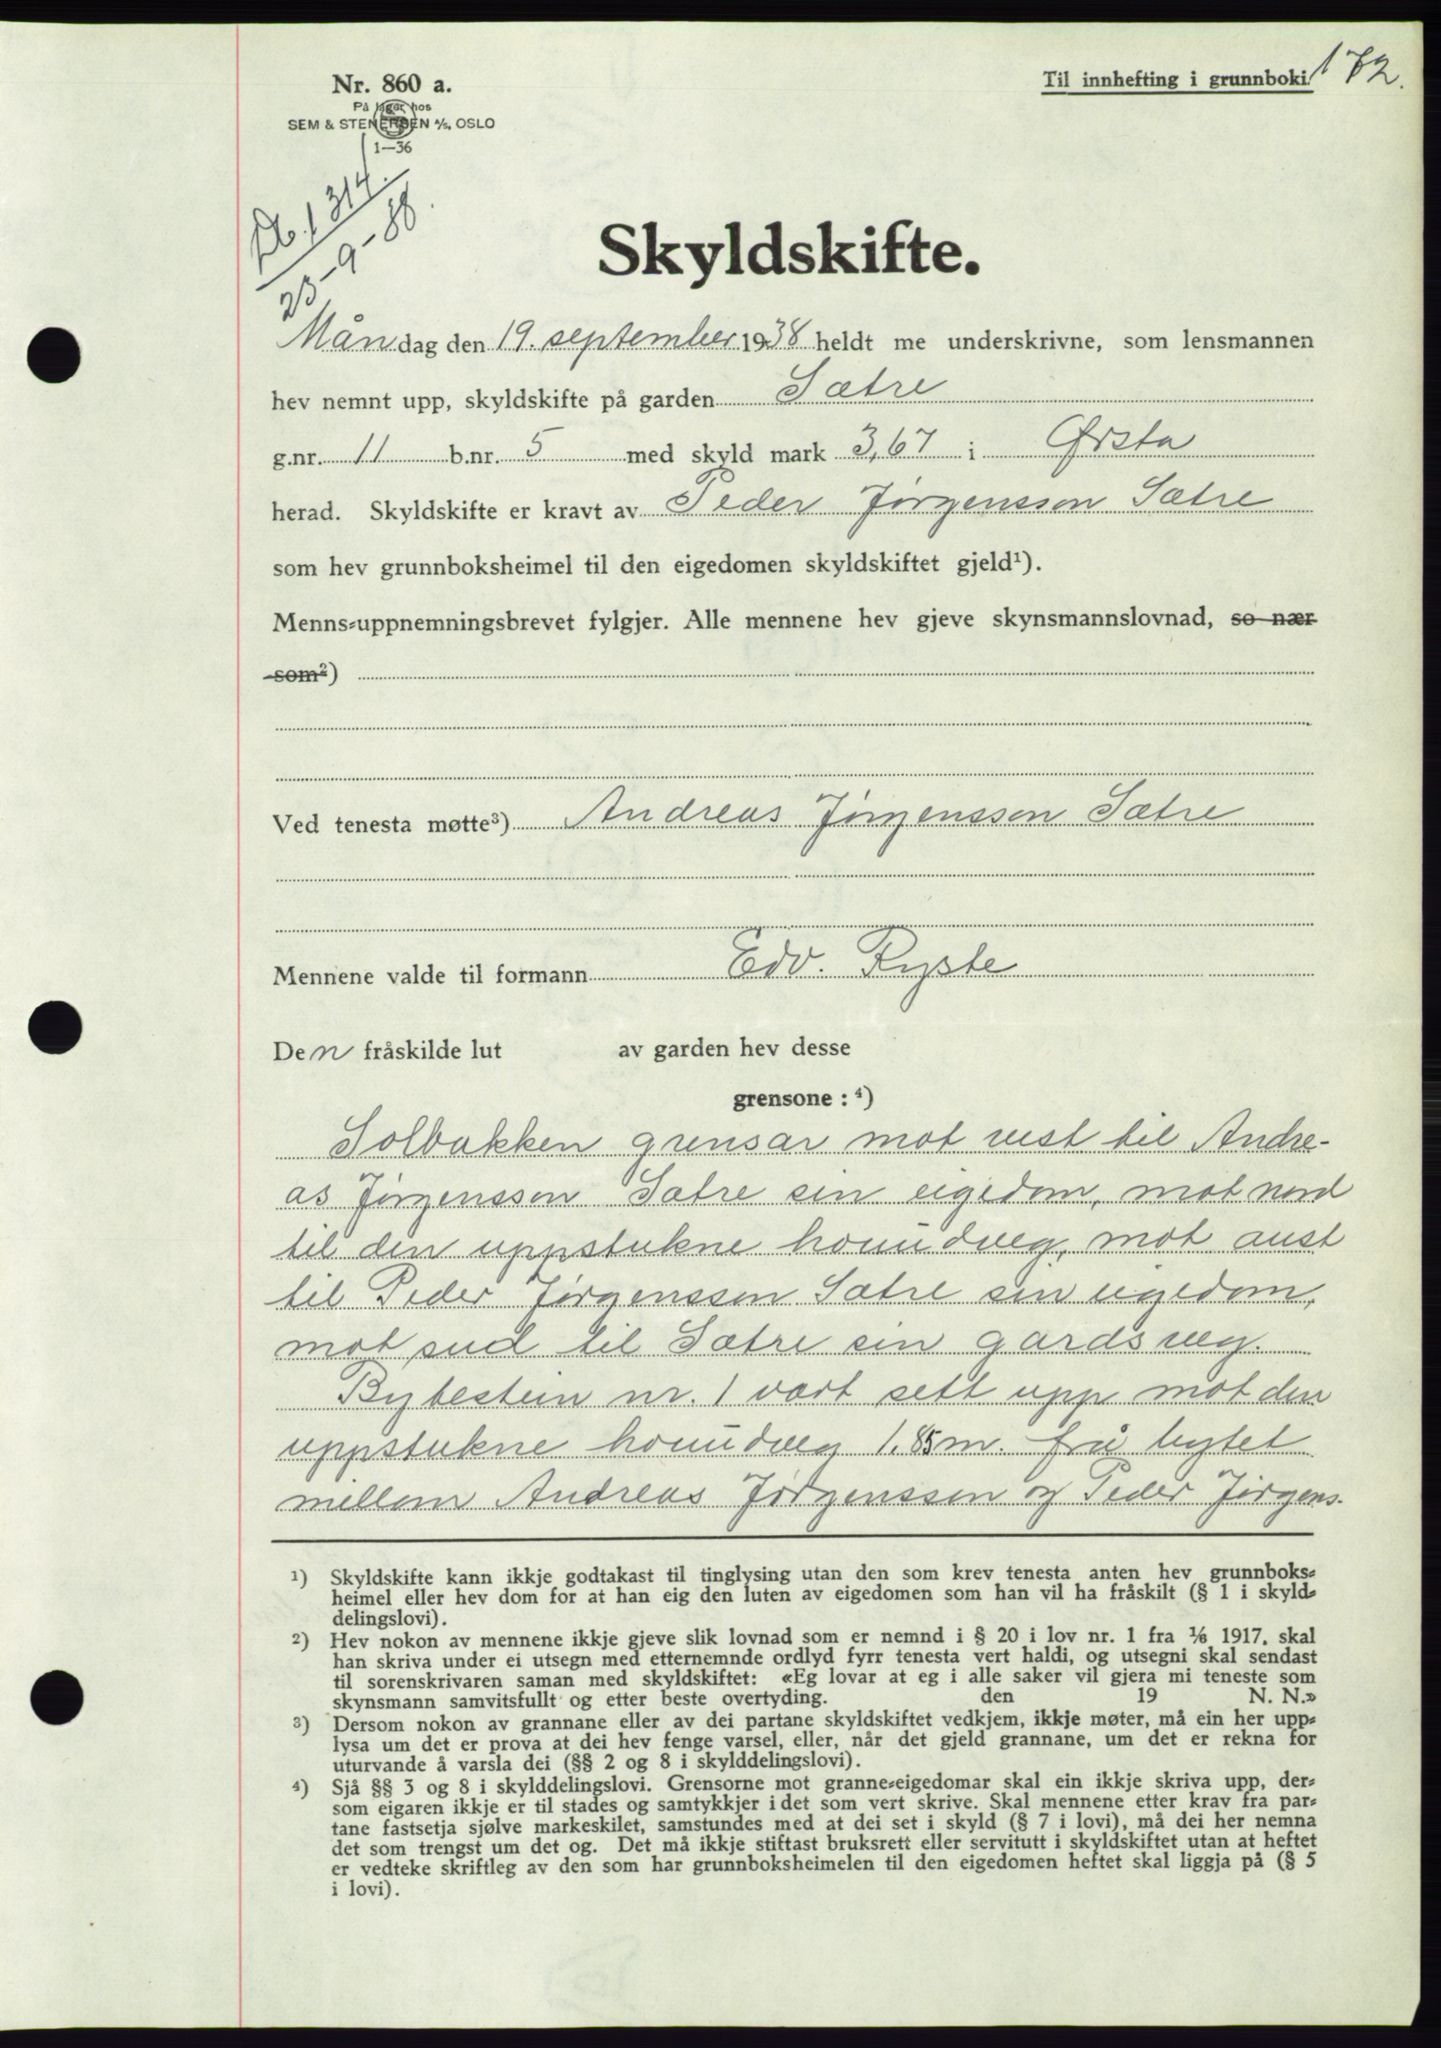 172.
Nr. 860 a.
Til innhefting i grunnboki
På lager hos
SEM & STENERSEN A/S, OSLO
1—36
Db. 1314.
23-9-38.
Skyldskifte.
Måndag den 19. september 1938 heldt me underskrivne, som lensmannen
hev nemnt upp, skyldskifte på garden Sætre
g.nr. 11 b.nr. 5 med skyld mark 3,67 i Ørsta
herad. Skyldskifte er kravt av Peder Jørgensson Sætre
som hev grunnboksheimel til den eigedomen skyldskiftet gjeld¹).
Menns-uppnemningsbrevet fylgjer. Alle mennene hev gjeve skynsmannslovnad, so nær
som²)
Ved tenesta møtte³) Andreas Jørgensson Sætre
Mennene valde til formann Edv. Ryste
Den fråskilde lut av garden hev desse
grensone : ⁴)
Solbakken grensar mot vest til Andre-
as Jørgensson Sætre sin eigedom, mot nord
til den uppstukne houudveg, mot aust
til Peder Jørgensson Sætre sin eigedom,
mot sud til Sætre sin gardsveg.
Bytestein nr. 1 vart sett upp mot den
uppstukne houudveg 1,85 m. frå bytet
millom Andreas Jørgensson og Peder Jørgens-
¹) Skyldskifte kann ikkje godtakast til tinglysing utan den som krev tenesta anten hev grunnboks-
heimel eller hev dom for at han eig den luten av eigedomen som han vil ha fråskilt (§ 1 i skyld-
delingslovi).
²) Hev nokon av mennene ikkje gjeve slik lovnad som er nemnd i § 20 i lov nr. 1 fra 1/6 1917, skal
han skriva under ei utsegn med etternemnde ordlyd fyrr tenesta vert haldi, og utsegni skal sendast
til sorenskrivaren saman med skyldskiftet: «Eg lovar at eg i alle saker vil gjera mi teneste som
skynsmann samvitsfullt og etter beste overtyding. den 19 N. N.»
³) Dersom nokon av grannane eller av dei partane skyldskiftet vedkjem, ikkje møter, må ein her upp-
lysa um det er prova at dei hev fenge varsel, eller, når det gjeld grannane, um det er rekna for
uturvande å varsla dei (§§ 2 og 8 i skylddelingslovi).
⁴) Sjå §§ 3 og 8 i skylddelingslovi. Grensorne mot granne-eigedomar skal ein ikkje skriva upp, der-
som eigaren ikkje er til stades og samtykkjer i det som vert skrive. Skal mennene etter krav fra par-
tane fastsetja sjølve markeskilet, samstundes med at dei set i skyld (§ 7 i lovi), må dei her nemna
det som trengst um det og. Det må ikkje stiftast bruksrett eller servitutt i skyldskiftet utan at heftet
er vedteke skriftleg av den som har grunnboksheimelen til den eigedomen heftet skal liggja på (§ 5
i lovi).